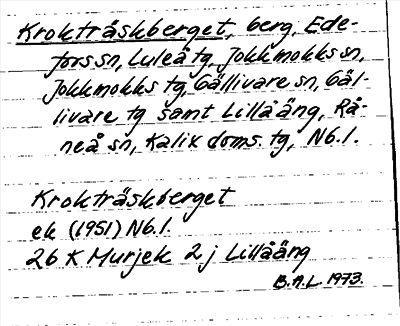 Krokträskberget, berg, Ede-
fors sn, Luleå tg, Jokkmokks sn,
Jokkmokks tg, Gällivare sn, Gäl-
livare tg samt Lillåäng, Rå-
neå sn, Kalix doms. tg, Nb.l.
Krokträskberget
ek (1951) Nb.l.
26 K Murjek 2 j Lillåäng
B.A.L. 1973.